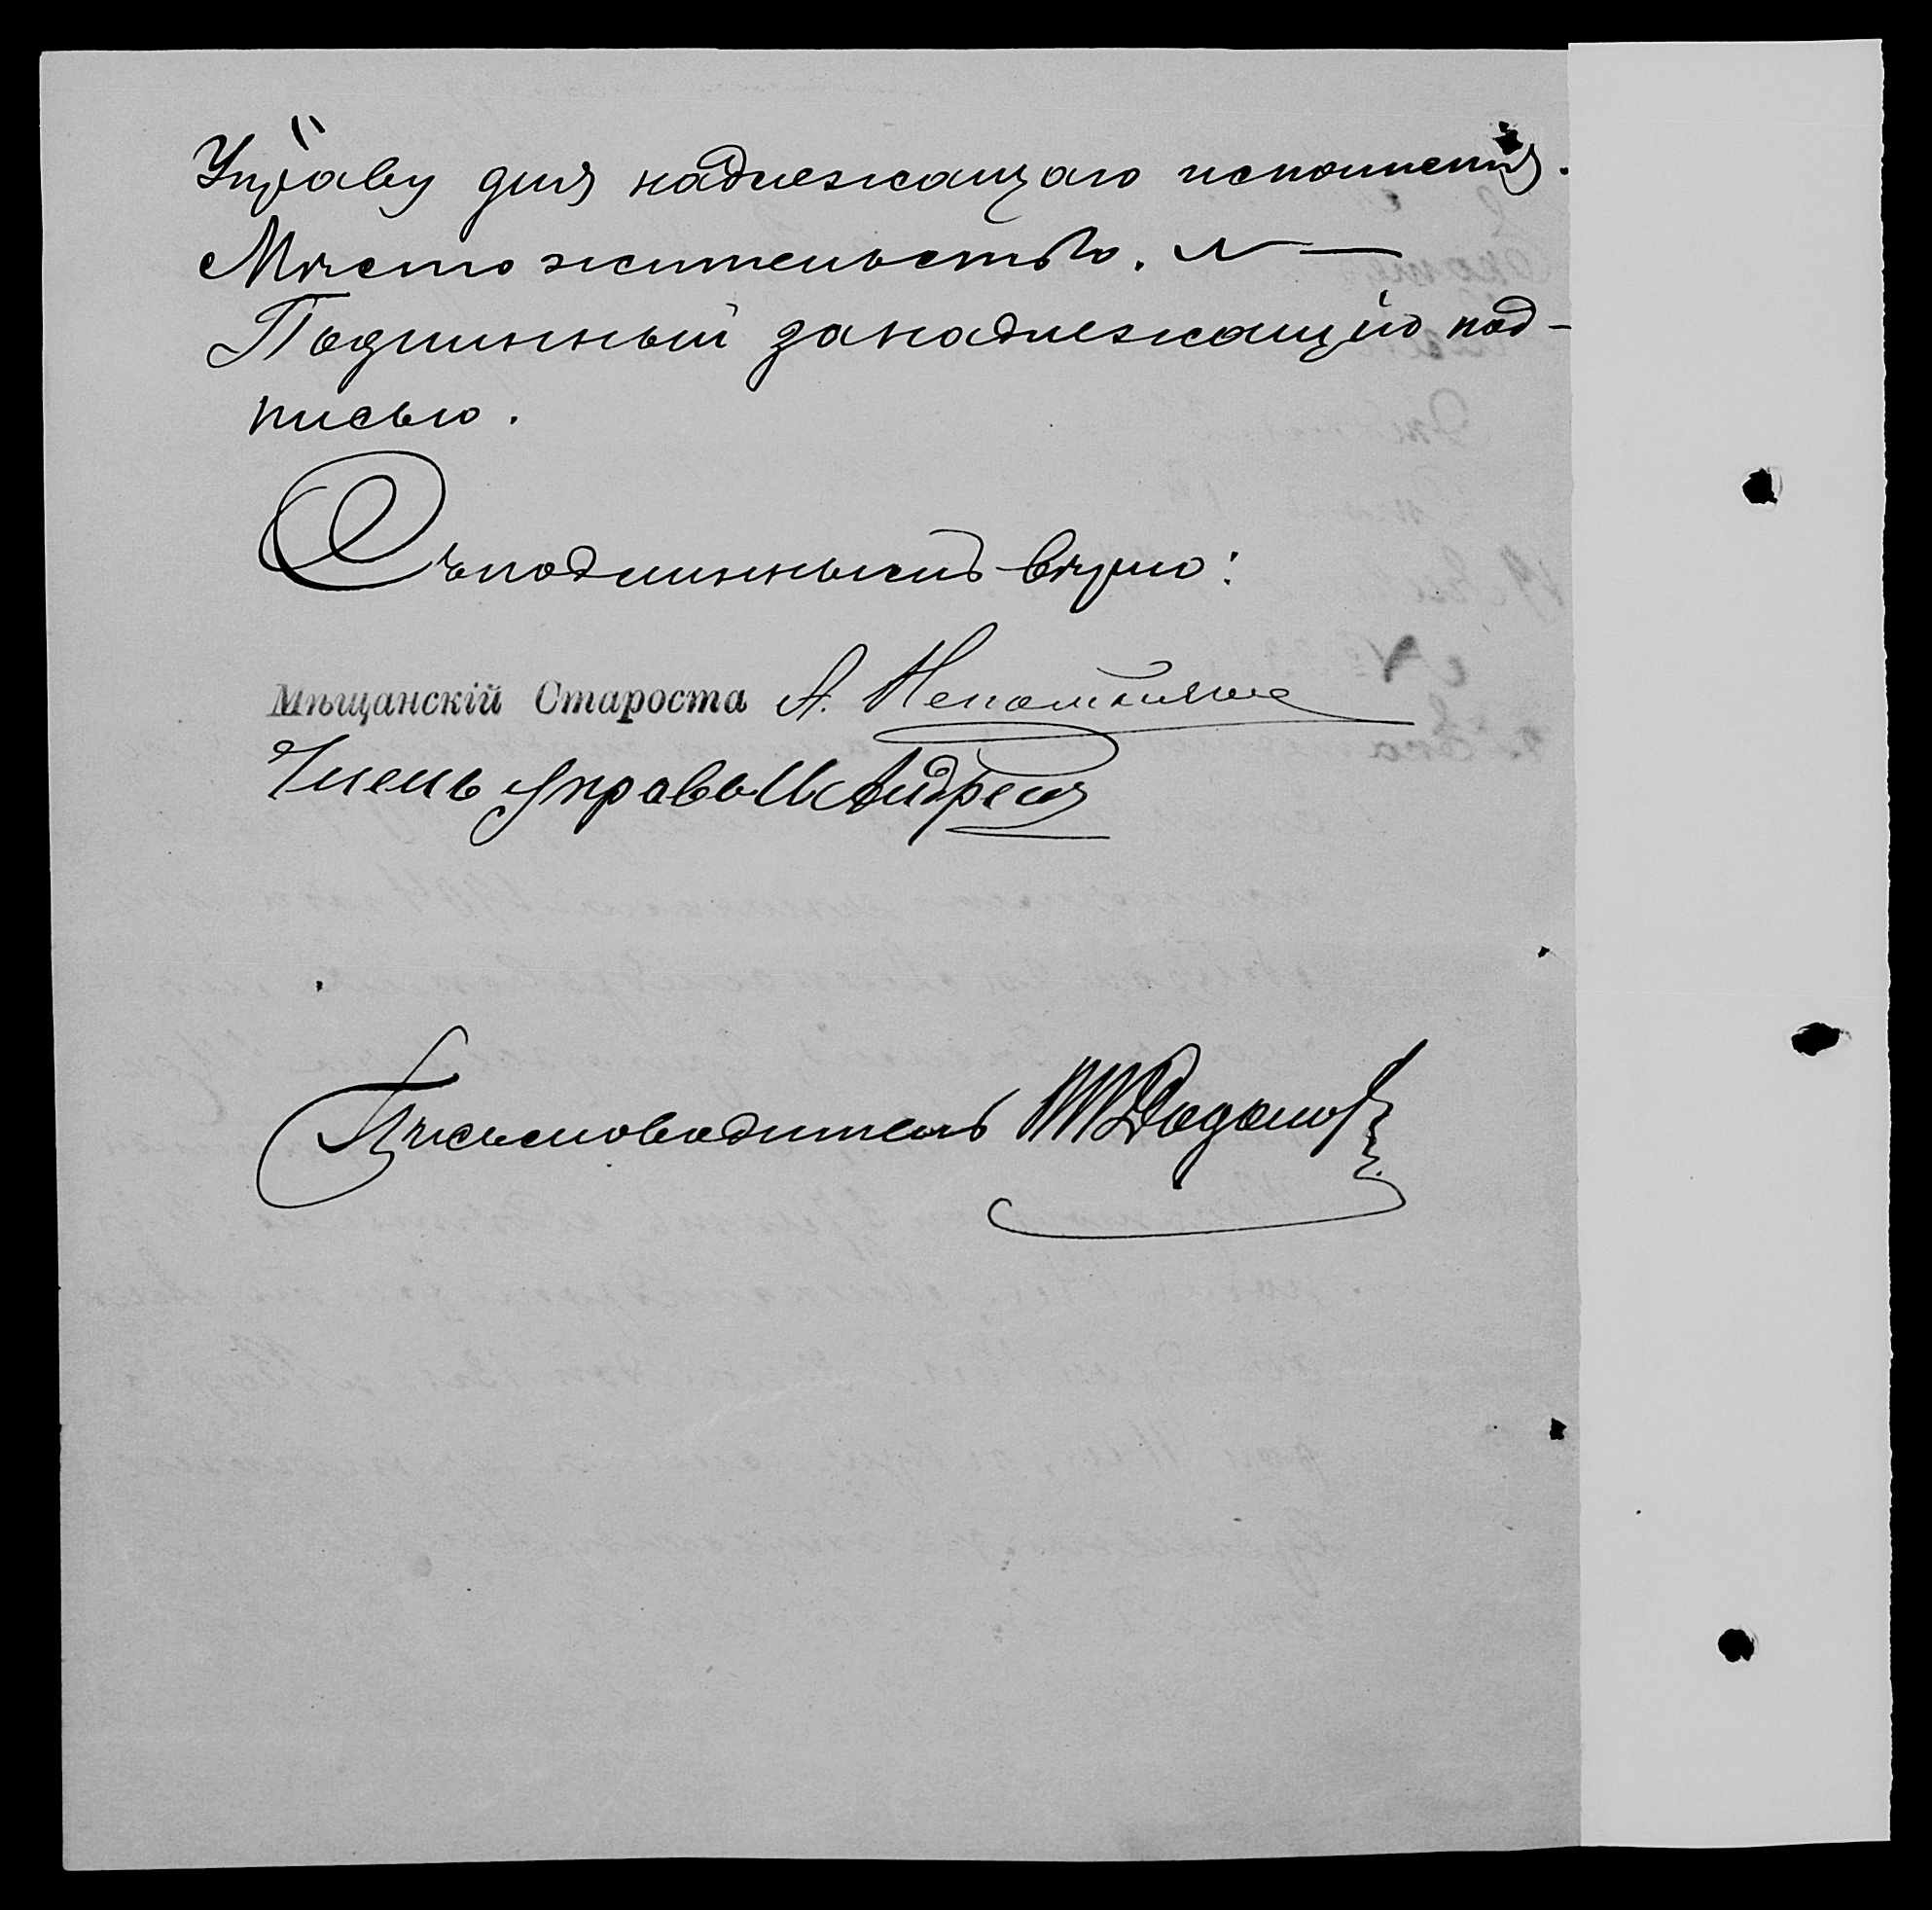 Управу для надлежащаго исполненія.
Мѣсто жительство. N —
Подлинный за надлежащію под-
писью.
Съ подлиннымъ вѣрно:
Мѣщанскій Староста А.
Членъ Управы
Письмоводитель